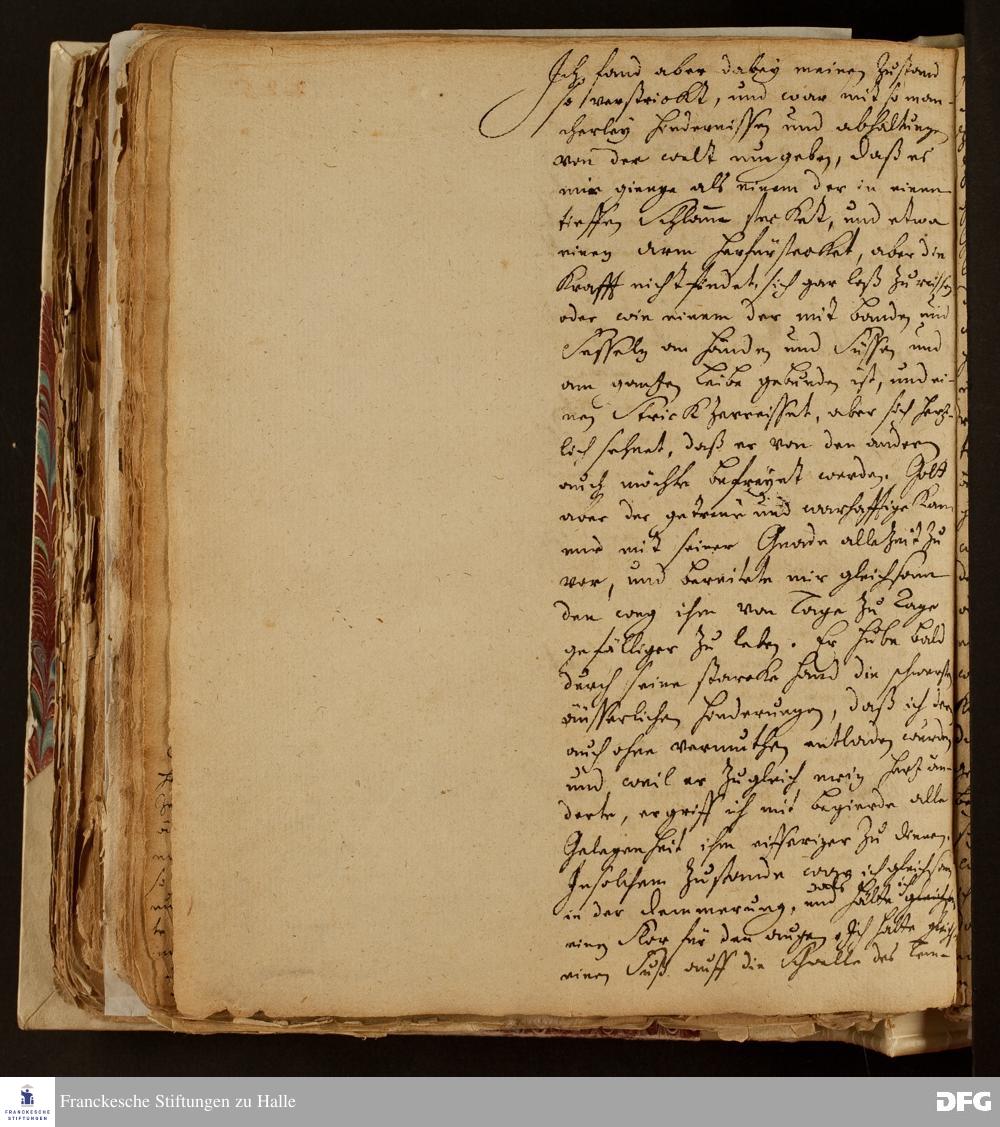 Ich fand aber dabey meinen Zustand
so verstrickt, und war mit so man-
cherley hindernissen und abhaltungen
von der welt umgeben, daß es
mir gienge als einem der in einem
tieffen Schlam̅ stecket, und etwa
einen arm herfür strecket, aber die
Krafft nicht findet, sich gar loß zureissen
oder wie einem der mit banden und
Fesseln an händen und Füssen und
am gantzen leibe gebunden ist, und ei-
nen Strick zerreisset, aber sich hertz-
lich sehnet, daß er von den andern
auch möchte befreyet werden. Gott
aber der getreue und warhafftige kam
mir mit seiner Gnade allezeit zu
vor, und bereitete mir gleichsam
den weg ihm von Tage zu Tage
gefälliger zu leben. Er hube bald
durch seine starcke hand die schwersten
äusserlichen hinderungen, daß ich der
auch ohne vermuthen entladen wurde,
und weil er zugleich mein hertz än-
derte, ergriff ich mit begierde alle
Gelegenheit ihm eifferiger zu dienen.
In solchem Zustande war ich gleichsam
in der demmerung, und als hätte ich
einen Flor für den augen. Ich hatte gleich-
einen Fuß auff die Schwelle des Tem-
Franckesche Stiftungen zu Halle
FRANCKESCHE
STIFTUNGEN
DFG